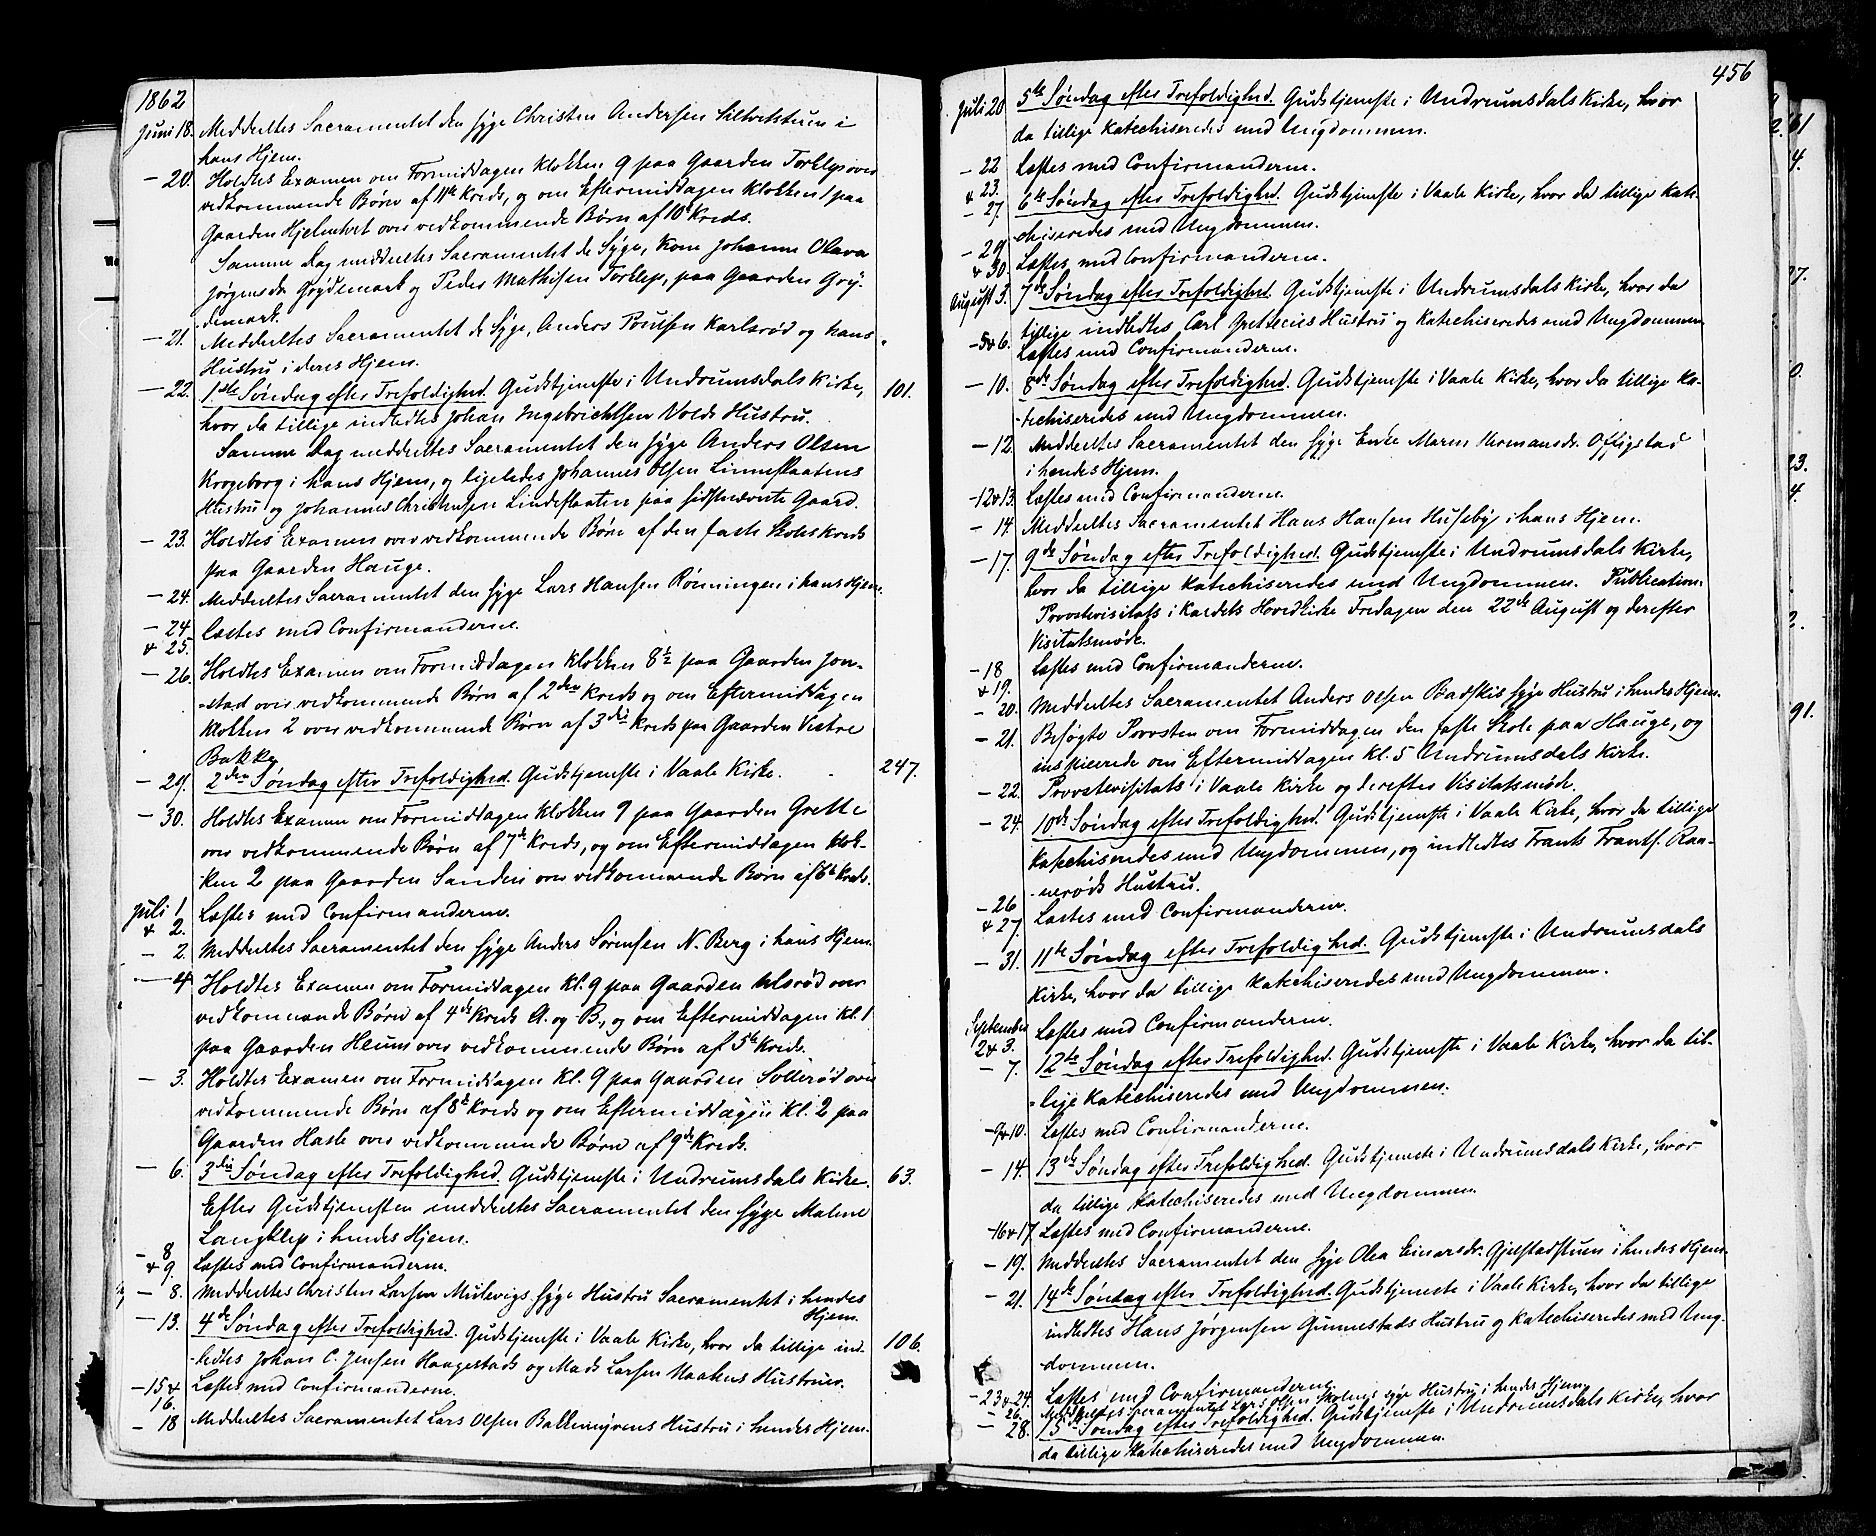 1862
Juni 18. Meddeeltes Sacramentet den syge Christen Andersen i
hans Hjem.
— 20. Holdtes Examen om Formiddagen Klokken 9 paa Gaarden Torklep over
vedkommende Børn af 11te Kreds, og om Eftermiddagen Klokken 1 paa
Gaarden Hjelmtvet over vedkommende Børn af 10de Kreds.
Samme Dag meddeeltes Sacramentet de Syge, Kone Johanne Olava
Jørgensdr Grydemark og Peder Mathisen Torklep, paa Gaarden Gry-
demark.
— 21. Meddeeltes Sacramentet de Syge, Anders Poulsen Karlsrød og hans
Hustru i deres Hjem.
— 22. 1ste Søndag efter Trefoldighed. Gudstjeneste i Undrumsdals Kirke, 101.
hvor da tillige indledtes Johan Ingebrichtsen Volds Hustru.
Samme Dag meddeeltes Sacramentet den syge Anders Olsen
Krogeborg i hans Hjem, og ligeledes Johannes Olsen Linneslaatens
Hustru og Johannes Christensen Lindeslaaten paa sidstnævnte Gaard.
— 23. Holdtes Examen over vedkommende Børn af den faste Skoles Kreds
paa Gaarden Hauge.
— 24. Meddeeltes Sacramentet den syge Lars Hansen Rønningen i hans Hjem.
— 24 Læstes med Confirmanderne.
& 25.
— 26. Holdtes Examen om Formiddagen Klokken 8½ paa Gaarden Jon-
-stad over vedkommende Børn af 2den Kreds og om Eftermiddagen
Klokken 2 over vedkommende Børn af 3die Kreds paa Gaarden Vestre
Bakke.
— 29. 2den Søndag efter Trefoldighed. Gudstjeneste i Vaale Kirke. 247.
— 30. Holdtes Examen om Formiddagen Klokken 9 paa Gaarden Grette
over vedkommende Børn af 7de Kreds, og om Eftermiddagen Klok-
ken 2 paa Gaarden Sanden over vedkommende Børn af 6te Kreds.
Juli 1 Læstes med Confirmanderne.
& 2.
— 2. Meddeeltes Sacramentet den syge Anders Sørensen N. Berg i hans Hjem.
— 4 Holdtes Examen om Formiddagen Kl. 9 paa Gaarden over
vedkommende Børn af 4de Kreds A. og B., og om Eftermiddagen Kl. 1
paa Gaarden Heum over vedkommende Børn af 5te Kreds.
— 3. Holdtes Examen om Formiddagen Kl. 9 paa Gaarden Sollerød over
vedkommende Børn af 8de Kreds og om Eftermiddagen Kl. 2 paa
Gaarden Hasle over vedkommende Børn af 9de Kreds.
— 6. 3die Søndag efter Trefoldighed. Gudstjeneste i Undrumsdals Kirke. 63.
Efter Gudstjenesten meddeeltes Sacramentet den syge Malene
Langklep i hendes Hjem.
— 8 Læstes med Confirmanderne.
& 9.
— 8. Meddeeltes Christen Larsen Mulevigs syge Hustru Sacramentet i hendes
Hjem.
— 13. 4de Søndag efter Trefoldighed. Gudstjeneste i Vaale Kirke, hvor da tillige ind- 106.
-ledtes Johan C. Jensen Haagestads og Mads Larsen Hustruer.
— 15 & Læstes med Confirmanderne.
16.
— 18 Meddeeltes Sacramentet Lars Olsen Bakkemyrens Hustru i hendes Hjem.
456
Juli 20 5te Søndag efter Trefoldighed. Gudstjeneste i Undrumsdals Kirke, hvor
da tillige Katechiseredes med Ungdommen.
— 22 Læstes med Confirmanderne.
& 23.
— 27. 6te Søndag efter Trefoldighed. Gudstjeneste i Vaale Kirke, hvor da tillige Kate-
chiseredes med Ungdommen.
— 29 Læstes med Confirmanderne.
& 30.
August 3. 7de Søndag efter Trefoldighed. Gudstjeneste i Undrumsdals Kirke, hvor da
tillige indledtes Carl Hustru og Katechiseredes med Ungdommen.
— 5 & 6. Læstes med Confirmanderne.
— 10. 8de Søndag efter Trefoldighed. Gudstjeneste i Vaale Kirke, hvor da tillige Ka-
-techiseredes med Ungdommen.
— 12. Meddeeltes Sacramentet den syge Enke Maren Hermansdr. Offigstad
i hendes Hjem.
— 12 & 13. Læstes med Confirmanderne.
— 14. Meddeeltes Sacramentet Hans Hansen Huseby i hans Hjem.
— 17. 9de Søndag efter Trefoldighed. Gudstjeneste i Undrumsdals Kirke,
hvor da tillige Katechiseredes med Ungdommen. Publication:
Provstevisitats i Kaldets Hovedkirke Fredagen den 22de August og derefter
Visitatsmøde.
— 18 Læstes med Confirmanderne.
& 19.
— 20. Meddeeltes Sacramentet Anders Olsen syge Hustru i hendes Hjem.
— 21. Besøgte Provsten om Formiddagen den faste Skole paa Hauge, og
inspicerede om Eftermiddagen Kl. 5 Undrumsdals Kirke.
— 22. Provstevisitats i Vaale Kirke og derefter Visitatsmøde.
— 24. 10de Søndag efter Trefoldighed. Gudstjeneste i Vaale Kirke, hvor da tillige
Katechiseredes med Ungdommen, og indledtes Frants Frants. Raa-
-nerøds Hustru.
— 26 Læstes med Confirmanderne.
& 27.
— 31. 11te Søndag efter Trefoldighed. Gudstjeneste i Undrumsdals
Kirke, hvor da tillige Katechiseredes med Ungdommen.
September Læstes med Confirmanderne.
2 & 3.
— 7. 12te Søndag efter Trefoldighed. Gudstjeneste i Vaale Kirke, hvor da til-
-lige Katechiseredes med Ungdommen.
— 9 & 10. Læstes med Confirmanderne.
— 14. 13de Søndag efter Trefoldighed. Gudstjeneste i Undrumsdals Kirke, hvor
da tillige Katechiseredes med Ungdommen.
— 16 & 17 Læstes med Confirmanderne.
— 19. Meddeeltes Sacramentet den syge Olea Einarsdr. Gjelstadstuen i hendes Hjem.
— 21. 14de Søndag efter Trefoldighed. Gudstjeneste i Vaale Kirke, hvor da tillige
indledtes Hans Jørgensen Gunnestads Hustru og Katechiseredes med Ung-
dommen.
— 23 & 24. Læstes med Confirmanderne.
— 26. Meddeeltes Sacramentet Lars Olsen syge Hustru i hendes Hjem.
— 28. 15de Søndag efter Trefoldighed. Gudstjeneste i Undrumsdals Kirke, hvor
da tillige Katechiseredes med Ungdommen.